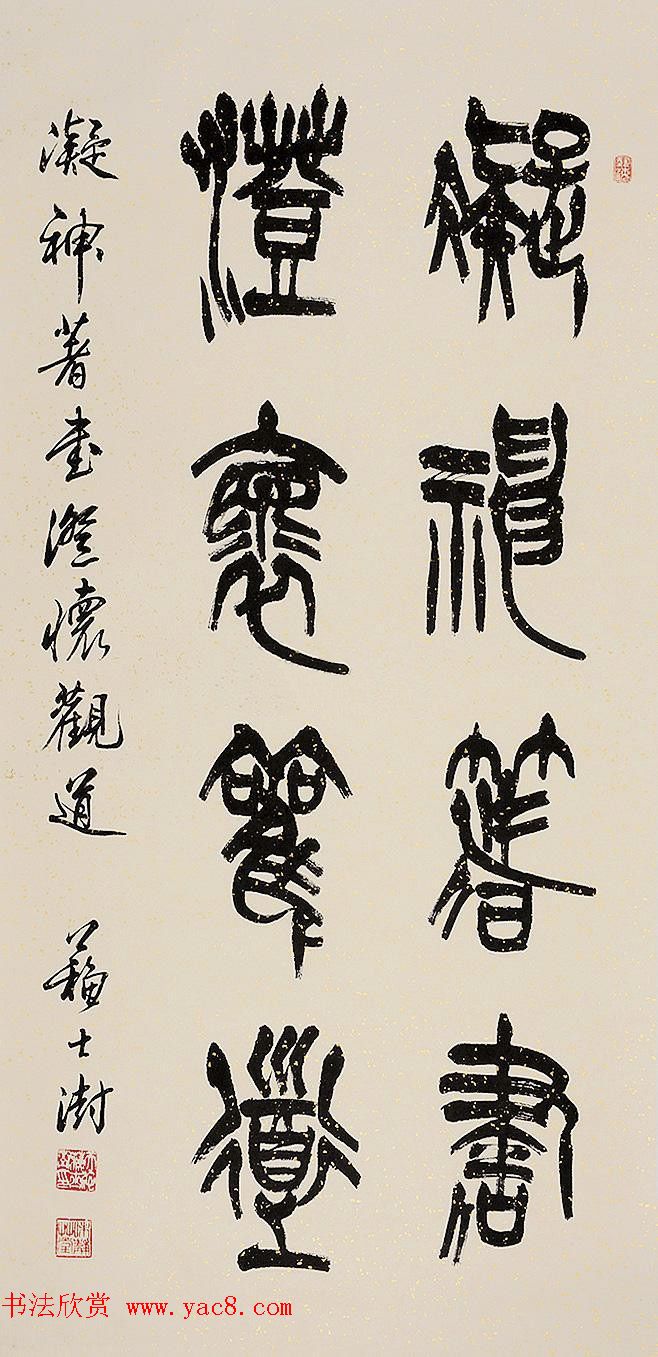 凝神著書
澄懷觀道
凝神著書澄懷觀道 蘇士澍
书法欣赏 www.yac8.com